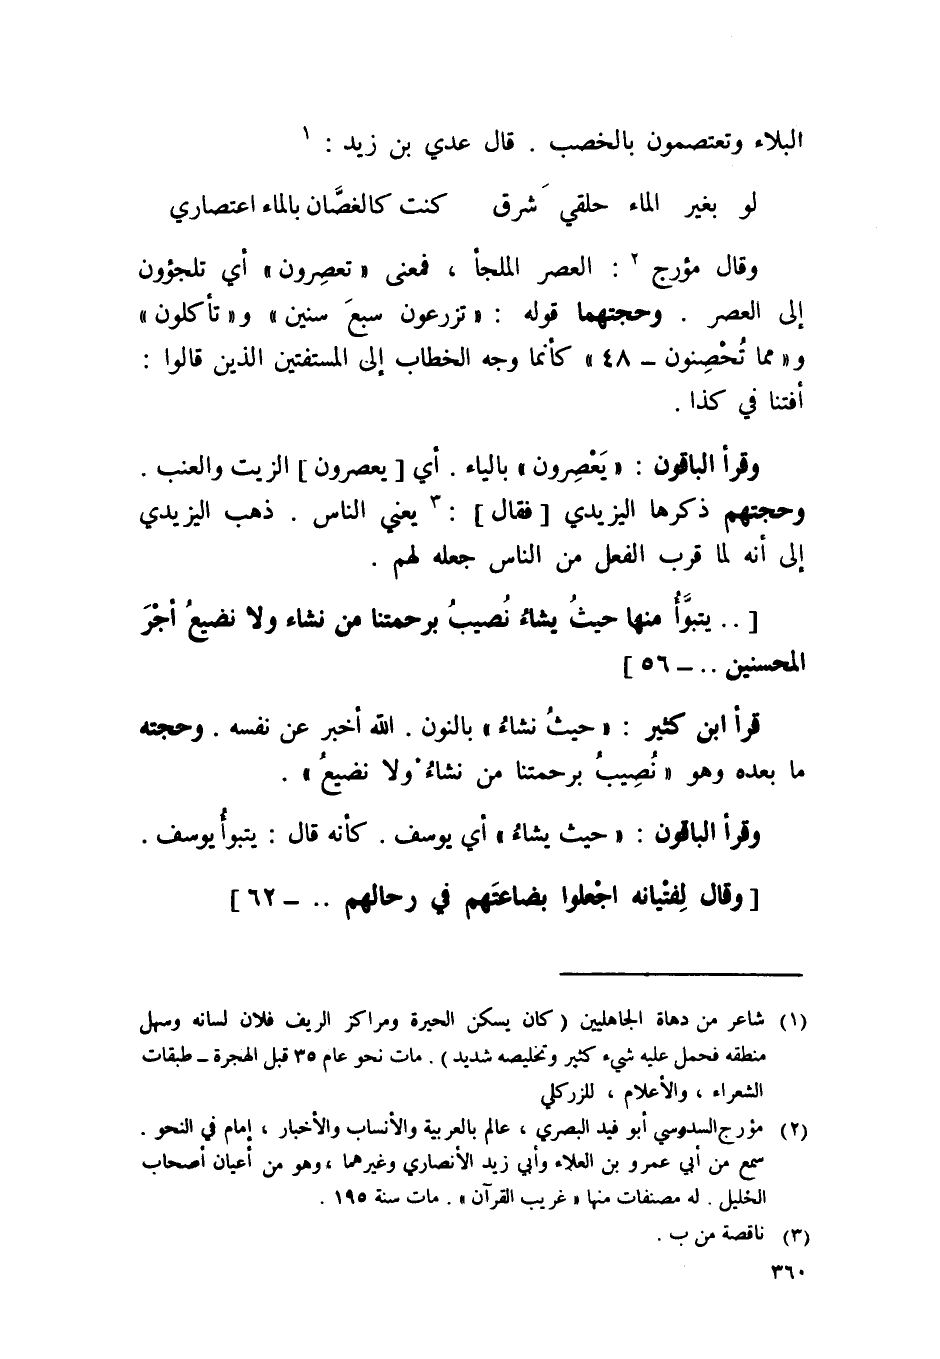 البلاء وتعتصمون بالخصب . قال عدي بن زيد : ١
لو بغير الماء حلقي شَرق كنت كالغصَّان بالماء اعتصاري
وقال مؤرج ٢ : العصر الملجأ ، فمعنى « تعصِرون » أي تلجؤون
إلى العصر . وحجتهما قوله : « تزرعون سبعَ سنين » و« تأكلون »
و« مما تُحْصِنون – ٤٨ » كأنما وجه الخطاب إلى المستفتين الذين قالوا :
أفتنا في كذا .
وقرأ الباقون : « يَعْصِرون » بالياء . أي [ يعصرون ] الزيت والعنب .
وحجتهم ذكرها اليزيدي [ فقال ] : ٣ يعني الناس . ذهب اليزيدي
إلى أنه لما قرب الفعل من الناس جعله لهم .
[ .. يتبوَّأُ منها حيثُ يشاءُ نُصيبُ برحمتنا من نشاء ولا نضيعُ أجْرَ
المحسنين .. – ٥٦ ]
قرأ ابن كثير : « حيثُ نشاءُ » بالنون . الله أخبر عن نفسه . وحجته
ما بعده وهو « نُصِيبُ برحمتنا من نشاءُ ولا نضيعُ » .
وقرأ الباقون : « حيث يشاءُ » أي يوسف . كأنه قال : يتبوأُ يوسف .
[ وقال لِفتْيانه اجْعلوا بضاعتَهم في رحالهم .. – ٦٢ ]
(١) شاعر من دهاة الجاهليين ( كان يسكن الحيرة ومراكز الريف فلان لسانه وسهل
منطقه فحمل عليه شيء كثير وتخليصه شديد ) . مات نحو عام ٣٥ قبل الهجرة – طبقات
الشعراء ، والأعلام ، للزركلي
(٢) مؤرج السدوسي أبو فيد البصري ، عالم بالعربية والأنساب والأخبار ، إمام في النحو .
سمع من أبي عمرو بن العلاء وأبي زيد الأنصاري وغيرهما ، وهو من أعيان أصحاب
الخليل . له مصنفات منها « غريب القرآن » . مات سنة ١٩٥ .
(٣) ناقصة من ب .
٣٦٠